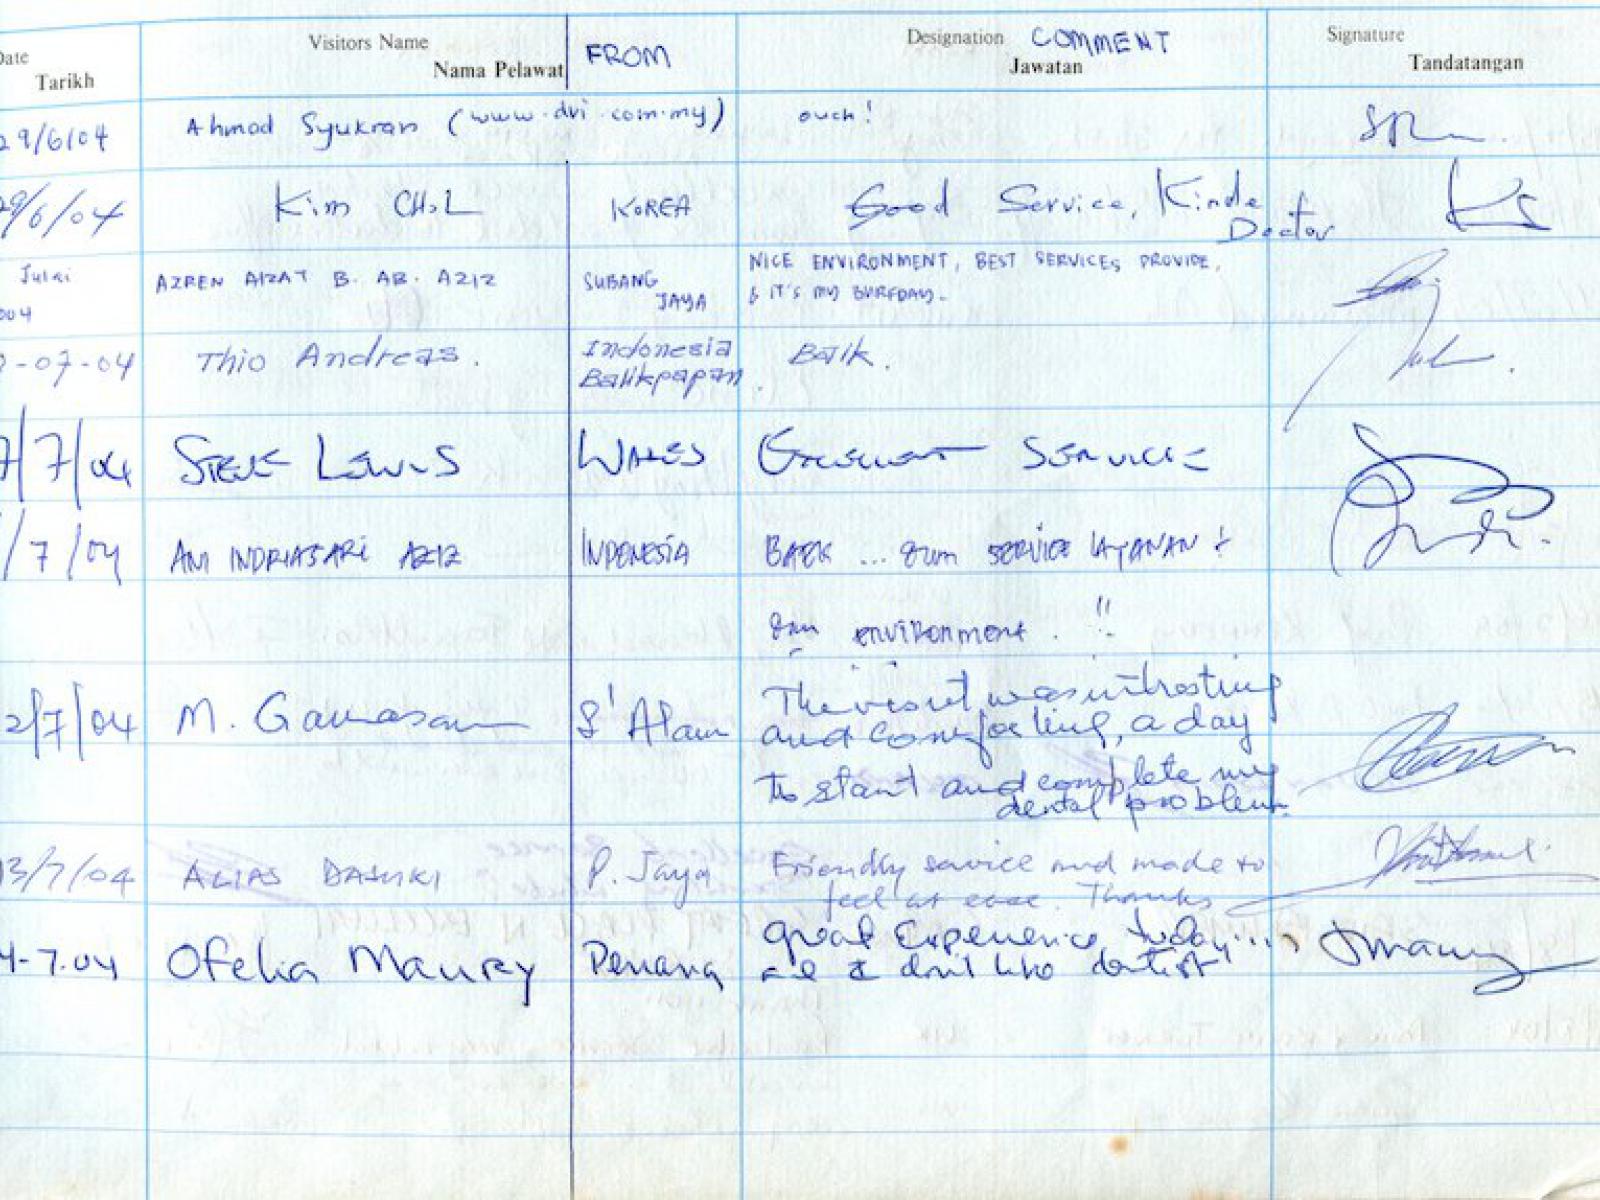 Date Visitors Name FROM Designation COMMENT Signature
Tarikh Nama Pelawat Jawatan Tandatangan
29/6/04 Ahmad Syukran (www.dvi.com.my) ouch!
29/6/04 Kim CHOL KOREA Good Service, Kinde
Doctor
Julai AZREN AIZAT B. AB. AZIZ SUBANG NICE ENVIRONMENT, BEST SERVICES PROVIDE,
004 JAYA & IT'S MY BURFDAY.
-07-04 Thio Andreas. Indonesia Baik.
Balikpapan
7/7/04 STEVE LEWIS WALES EXCELLENT SERVICE
/7/04 ANI INDRIASARI AZIZ INDONESIA BAEK ... SERVICE LAYANAN!
environment. !!
2/7/04 M. S' Alam The visit was introsting
and comforting, a day
to start and complete my
dental problem.
13/7/04 ALIAS DASUKI P. Jaya Friendly service and made to
feel at ease. Thanks
4-7.04 Ofelia Maury Penang great Experience today....
I don't like dentist!